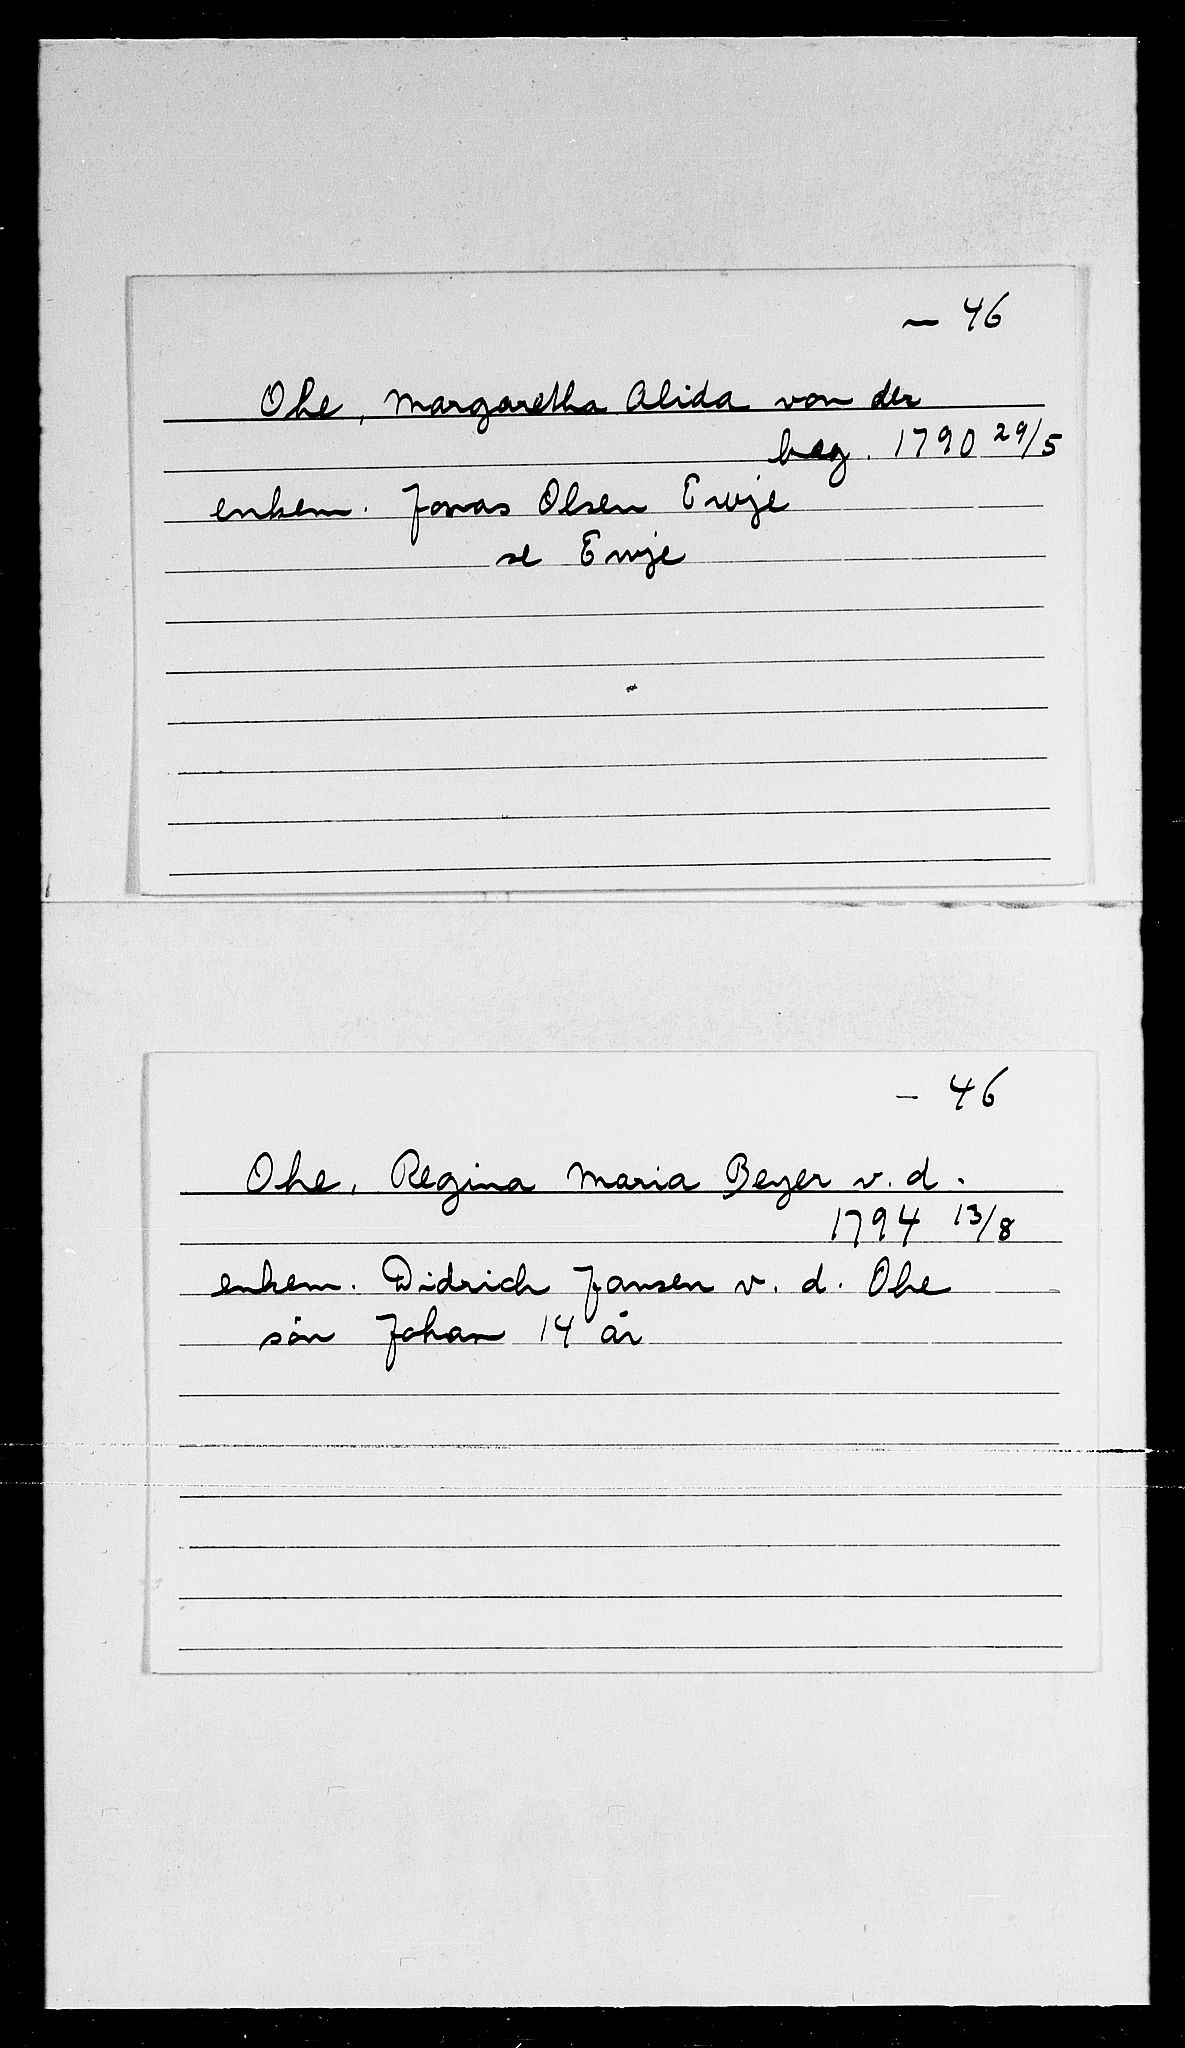 - 46
Ohe, Margaretha Alida von der
beg. 1790 29/5
enkem. Jonas Olsen Ervje
se Ervje
- 46
Ohe, Regina Maria Beyer v. d.
1794 13/8
enkem. Didrich Jansen v. d. Ohe
sön Johan 14 år